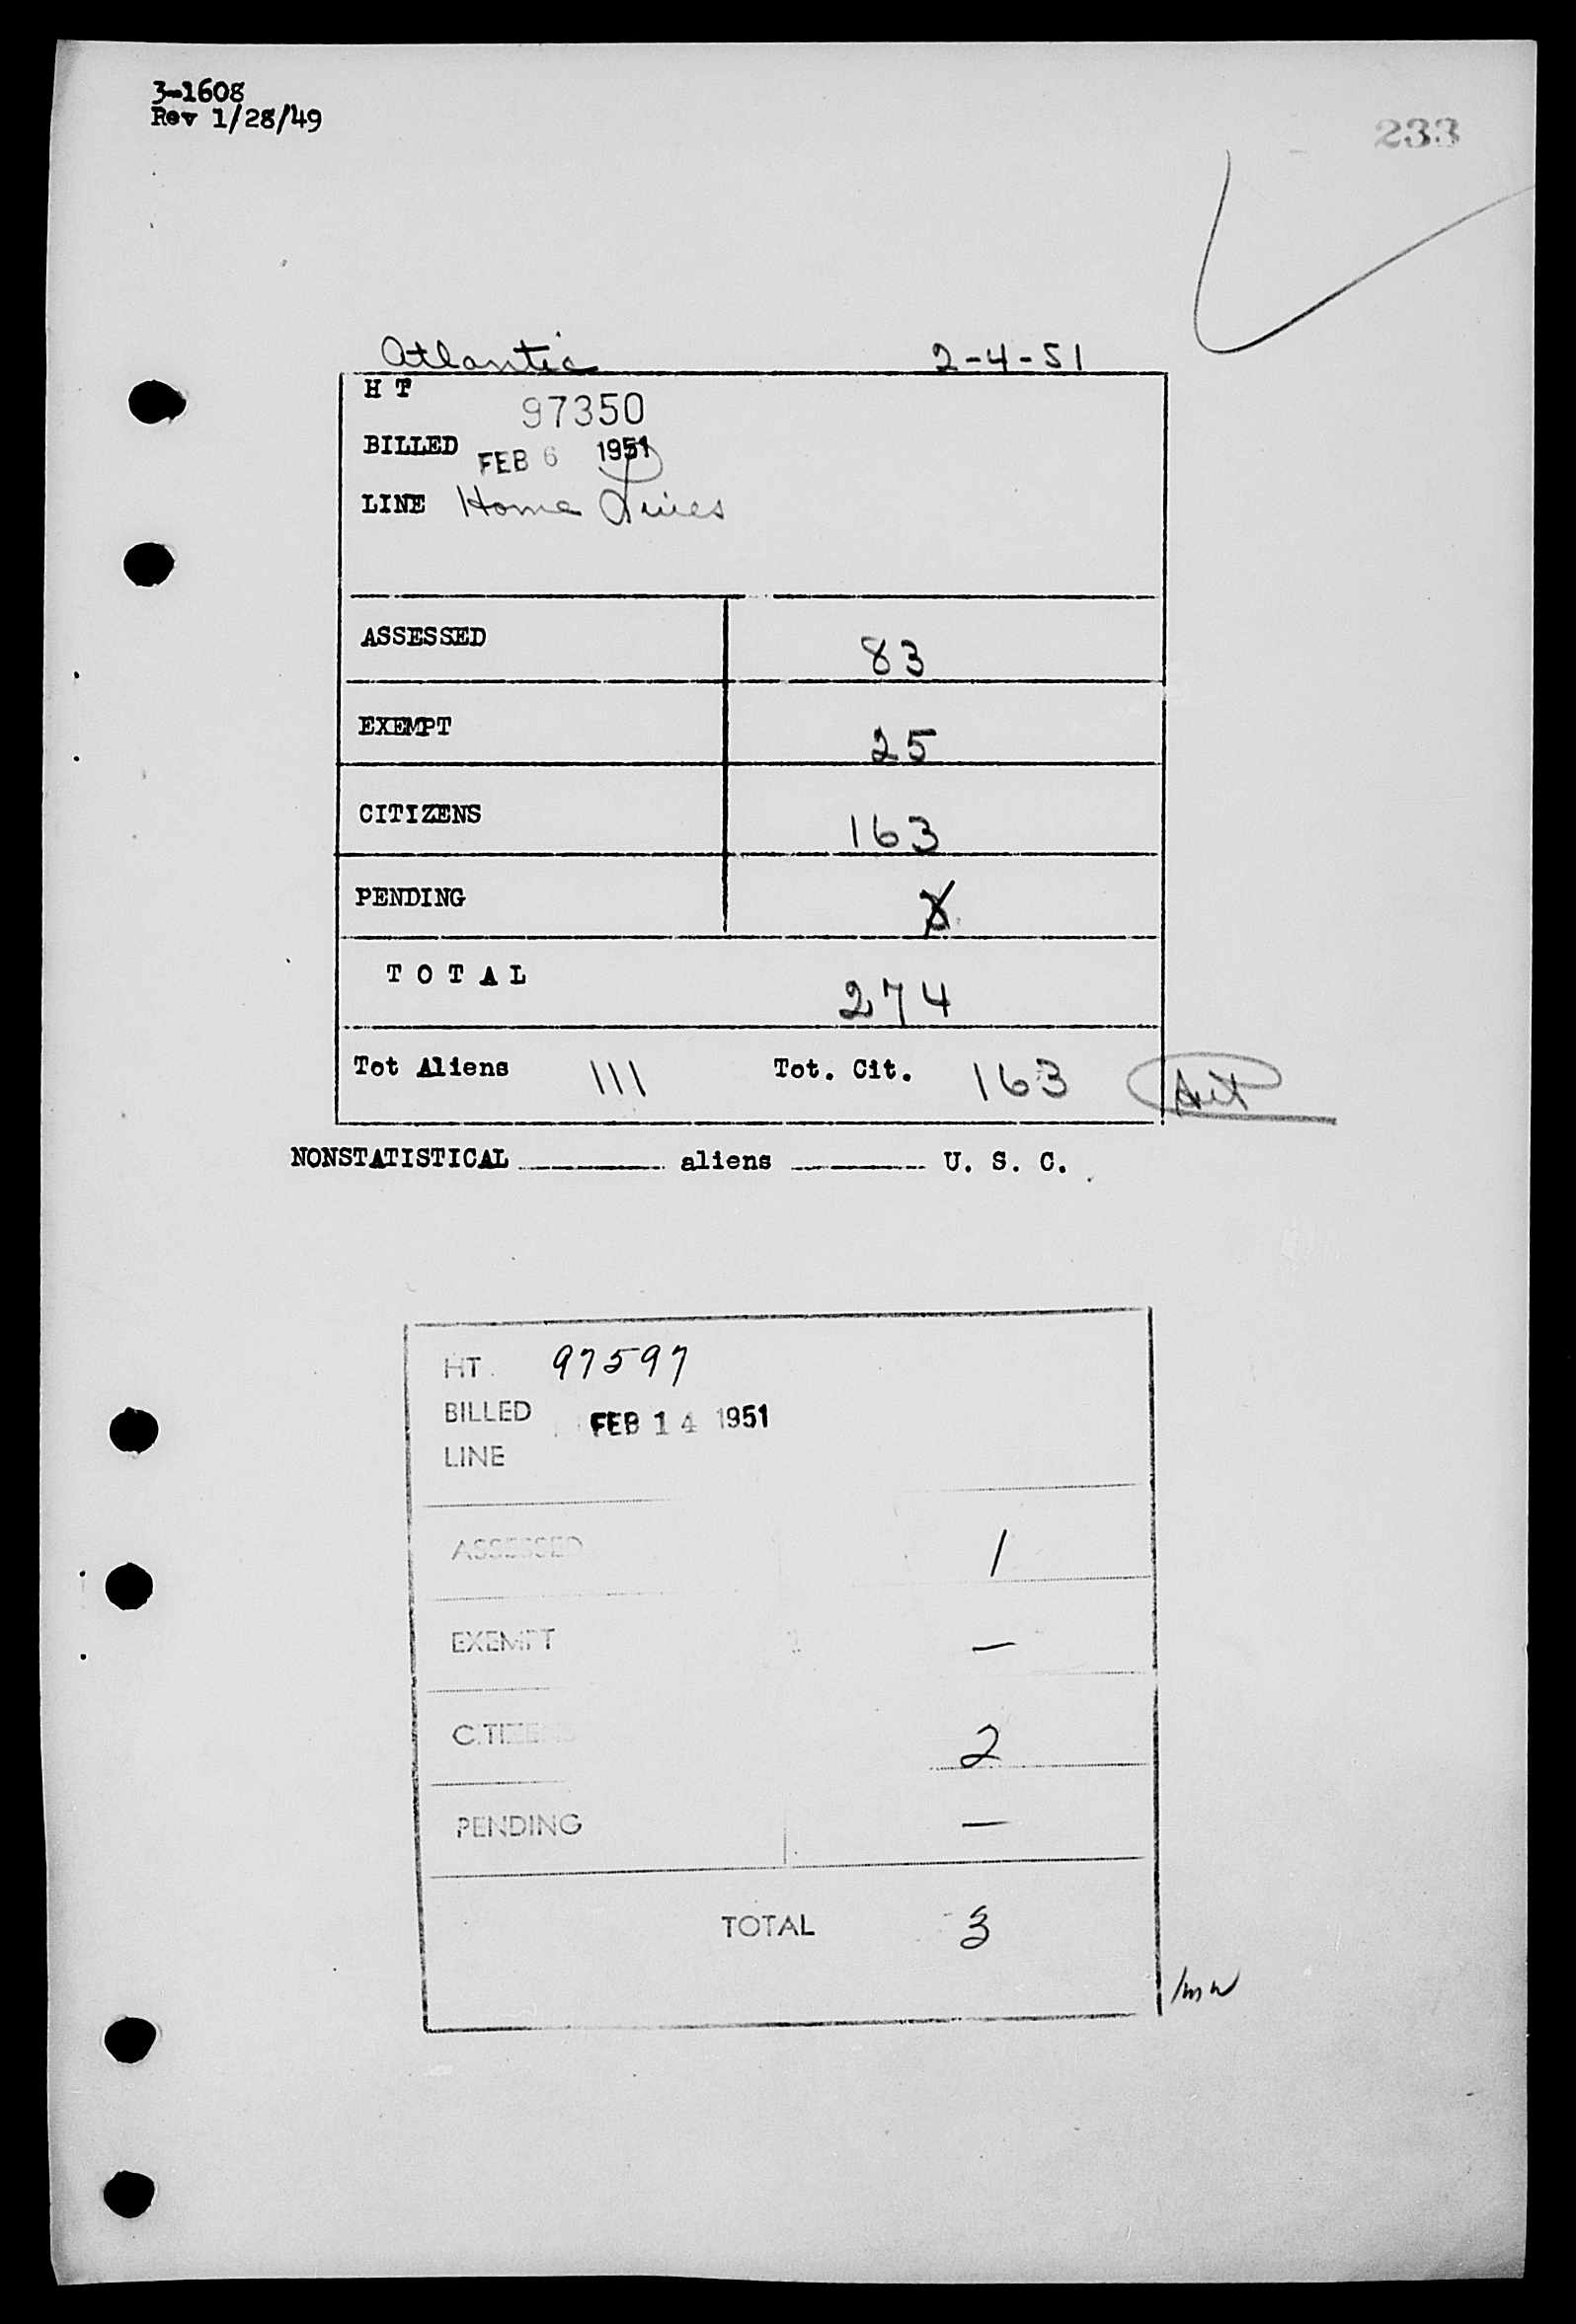 3-1608
Rev 1/28/49
233
Atlantic 2-4-51
H T 97350
BILLED FEB 6 1951
LINE Home Lines
ASSESSED 83
EXEMPT 25
CITIZENS 163
PENDING
T O T A L 274
Tot Aliens 111 Tot. Cit. 163
NONSTATISTICAL aliens U. S. C.
HT. 97597
BILLED FEB 14 1951
LINE
ASSESSED 1
EXEMPT —
CITIZENS 2
PENDING —
TOTAL 3